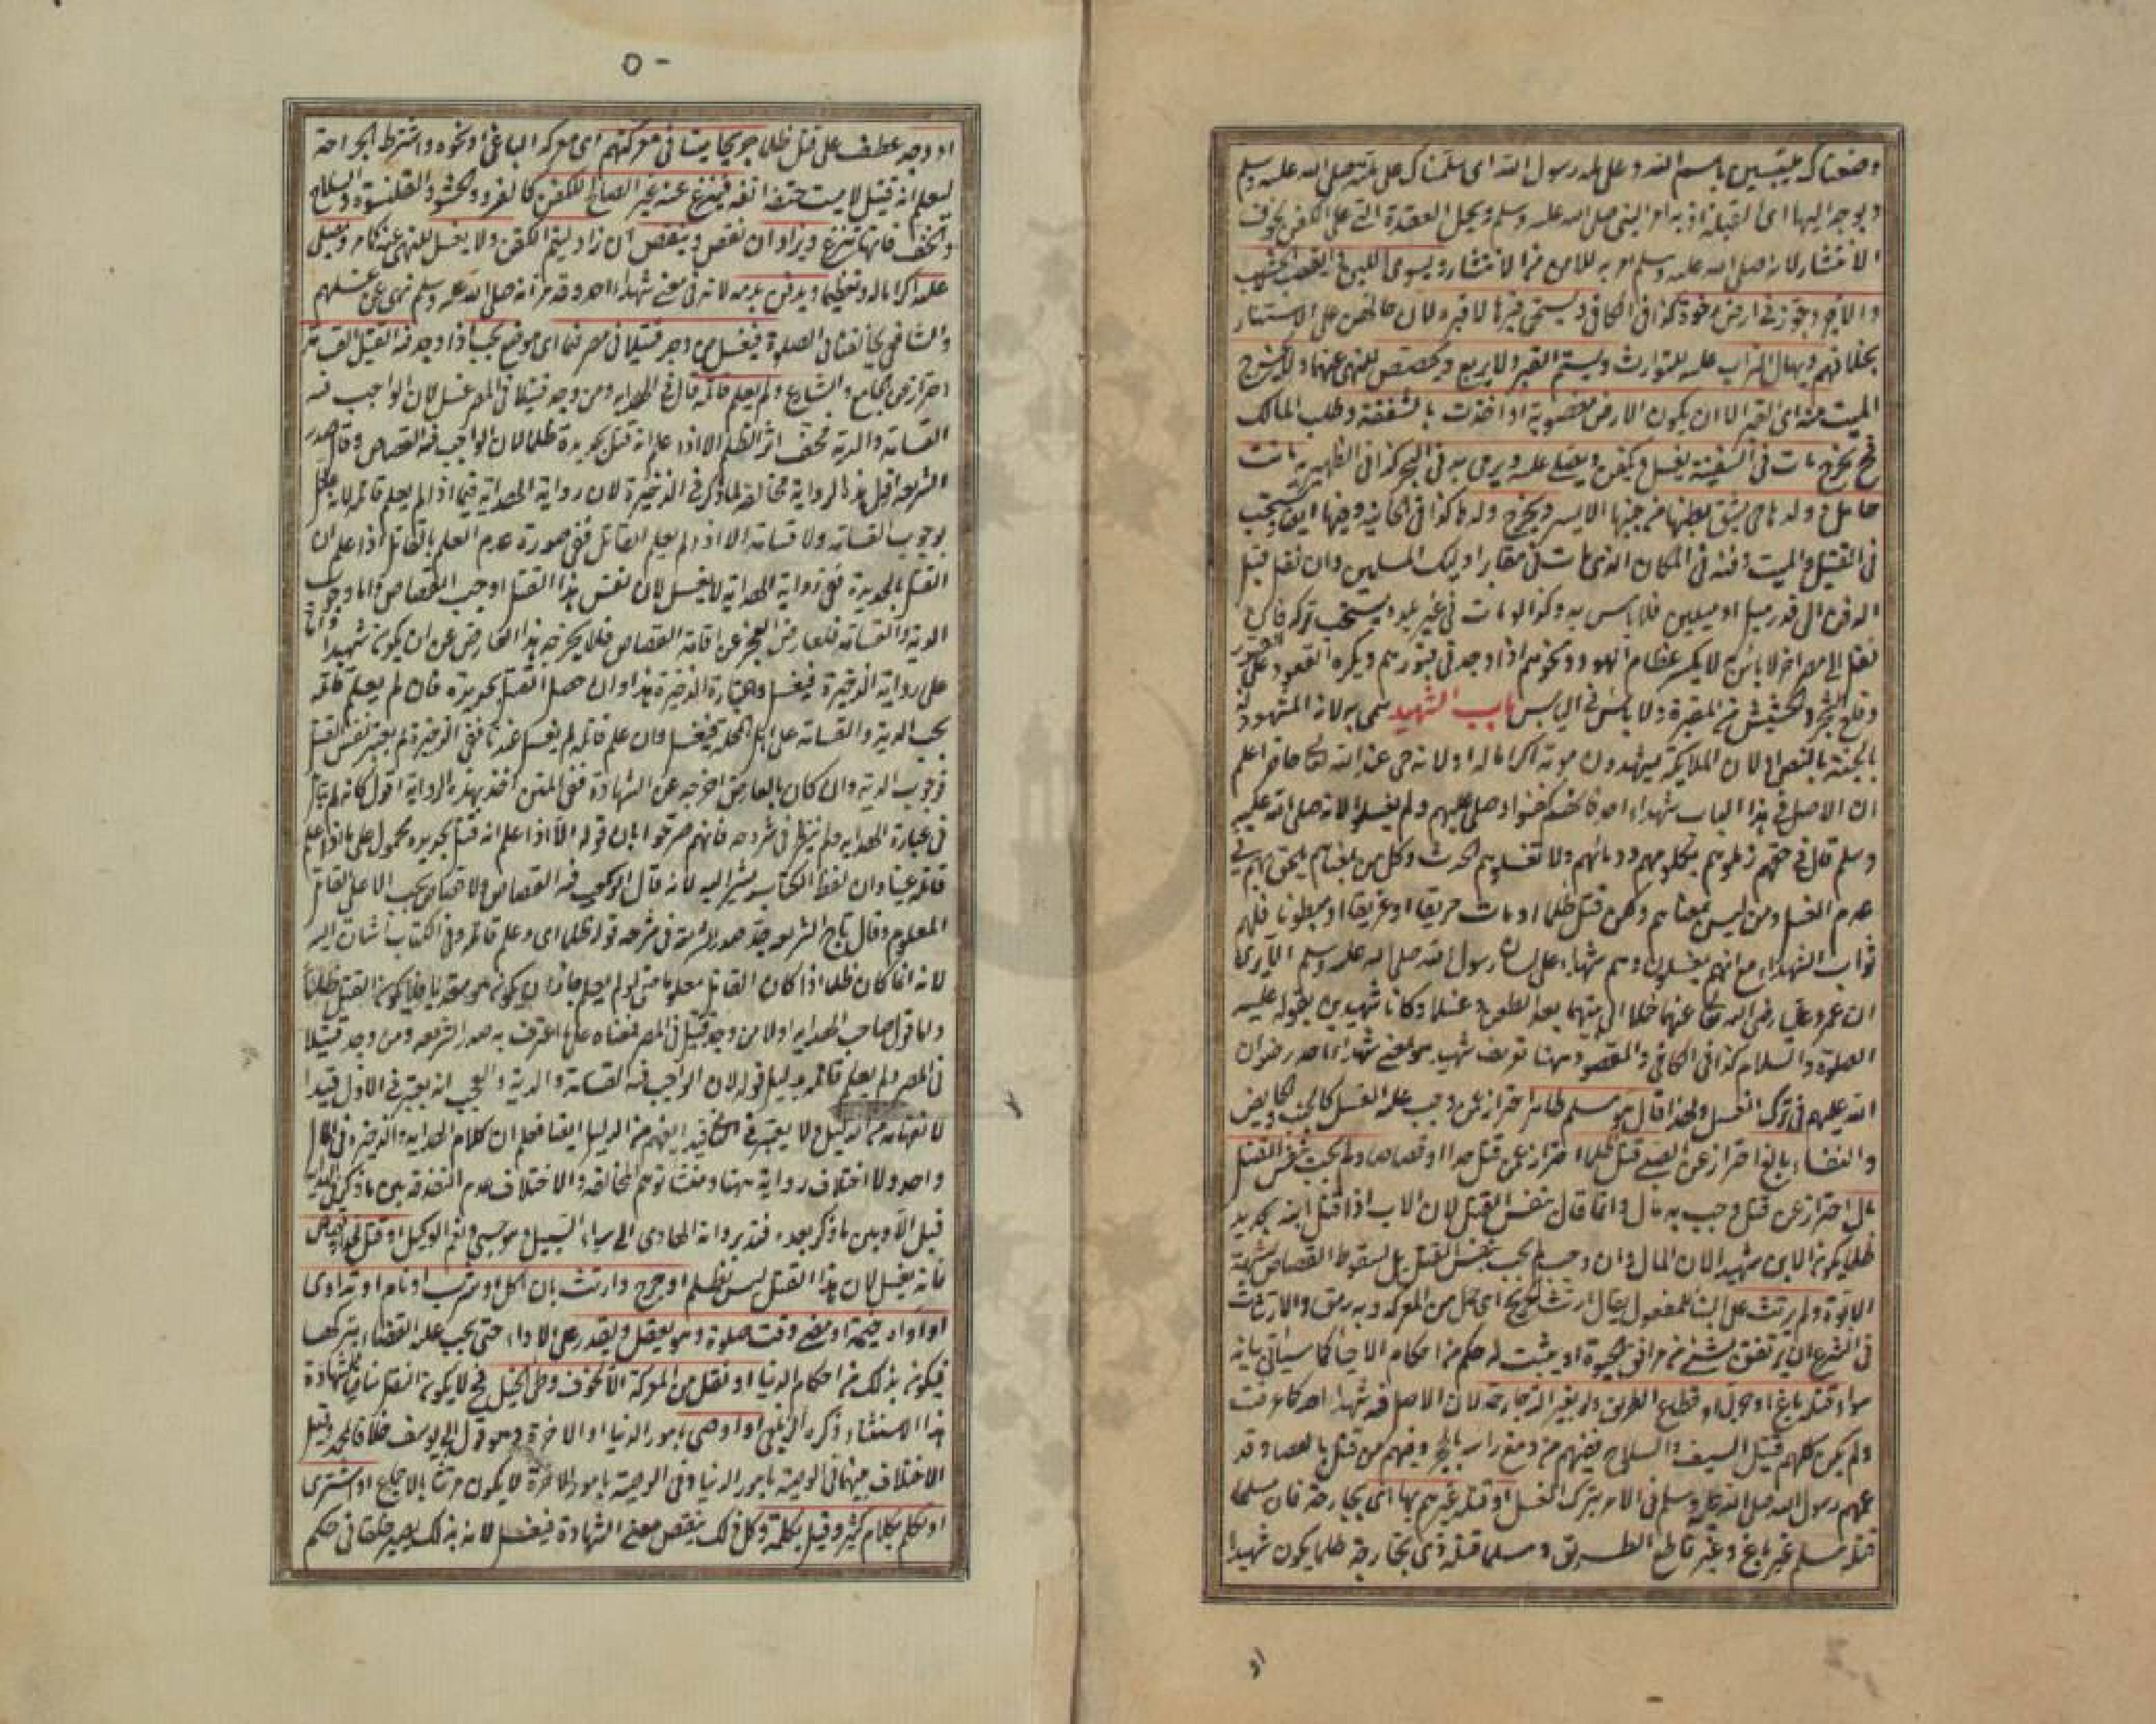 وضعناك متلبسين باسم الله وعلى ملة رسول الله اى سلمناك على ملته صلى الله عليه وسلم
ويوجه اليها اى القبلة اذ به امر النبى صلى الله عليه وسلم ويحل العقدة التى على الكفن لخوف
الانتشار لانه صلى الله عليه وسلم امر به للامن من الانتشار ويسوى اللبن والقصب لا الخشب
والآجر وجوز فى ارض رخوة كذا فى الكافى ويسجى قبرها لا قبره لان حالهن على الاستتار
بخلافهم ويهال التراب عليه للتوارث ويسنم القبر ولا يربع ويجصص للنهى عنهما ولا يخرج
الميت منه اى القبر الا ان يكون الارض مغصوبة او اخذت بالشفعة وطلب المالك
فح يخرج مات فى السفينة يغسل ويكفن ويصلى عليه ويرمى به فى البحر كذا فى الظهيرية ماتت
حامل وولدها حى يشق بطنها من جنبها الايسر ويخرج ولدها كذا فى الخانية وفيها ايضا يستحب
فى القتيل والميت دفنه فى المكان الذى مات فى مقابر اولئك المسلمين وان نقل قبل
الدفن الى قدر ميل او ميلين فلا باس به وكذا لو مات فى غير بلده يستحب تركه فان
نقل الى مصر آخر لا باس به لا يكسر عظام اليهود ونحوهم اذا وجد فى قبورهم ويكره القعود على القبور
وقلع الشجر والحشيش من المقبرة ولا باس فى اليابس باب الشهيد سمى به لانه المشهود له
بالجنة بالنص او لان الملائكة يشهدون موته اكراما له او لانه حى عند الله تعالى حاضر اعلم
ان الاصل فى هذا الباب شهداء احد فانهم كفنوا وصلى عليهم ولم يغسلوا لانه صلى الله عليه
وسلم قال فى حقهم زملوهم بكلومهم ودمائهم ولا تغسلوهم الحديث وكل من بمعناهم يلحق بهم فى
عدم الغسل ومن ليس بمعناهم ولكن قتل ظلما او مات حريقا او غريقا او مبطونا فلهم
ثواب الشهداء مع انهم يغسلون وهم شهداء على لسان رسول الله صلى الله عليه وسلم الا يرى
ان عمر وعليا رضى الله تعالى عنهما حملا الى بيتهما بعد الطعن وغسلا وكانا شهيدين بقوله عليه
الصلوة والسلام كذا فى الكافى والمقصود ههنا تعريف شهيد هو بمعنى شهداء احد رضوان
الله عليهم فى ترك الغسل ولهذا قال هو مسلم طاهر احتراز عمن وجب عليه الغسل كالجنب والحايض
والنفساء بالغ احتراز عن الصبى قتل ظلما احتراز عمن قتل حدا او قصاصا ولم يجب بنفس القتل
مال احتراز عن قتل وجب به مال وانما قال بنفس القتل لان الاب اذا قتل ابنه بحديد
ظلما يكون الابن شهيدا لان المال وان وجب لم يجب بنفس القتل بل لسقوط القصاص بشبهة
الابوة ولم يرتث على البناء للمفعول يقال ارتث الجريح اى حمل من المعركة وبه رمق والارتثاث
فى الشرع ان يرتفق بشئ من مرافق الحيوة او يثبت له حكم من احكام الاحياء كما سيأتى بيانه
سواء قتله باغ او حربى او قطاع الطريق ولو بغير آلة جارحة لان الاصل فيه شهداء احد كما عرفت
ولم يكن كلهم قتيل السيف والسلاح ففيهم من دمغ راسه بالحجر وفيهم من قتل بالعصا وقد
عمهم رسول الله صلى الله عليه وسلم فى الامر بترك الغسل او قتله غيرهم بها اى بجارحة فان مسلما
قتله مسلم غير باغ وغير قاطع الطريق ومسلما قتله ذمى بجارحة ظلما يكون شهيدا
او
٥٠
او وجد عطف على قتل ظلما جريحا ميتا فى معركتهم اى معركة الباغى او نحوه واشترط الجراحة
ليعلم انه قتيل لا ميت حتف انفه فينزع عنه غير الصالح للكفن كالفرو والحشو والقلنسوة والسلاح
والخف فانها تنزع ويزاد ان نقص وينقص ان زاد ليتم الكفن ولا يغسل للنهى عنه كما مر ويصلى
عليه اكراما له وتعظيما ويدفن بدمه لانه فى معنى شهداء احد وقد مر انه صلى الله عليه وسلم نهى عن غسلهم
والشافعى يخالفنا فى الصلوة فيغسل من وجد قتيلا فى مصر فيما اى موضع يجب اذا وجد فيه القتيل القسامة
احترازا عن الجامع والشارع ولم يعلم قاتله قال فى الهداية ومن وجد قتيلا فى المصر غسل لان الواجب فيه
القسامة والدية فخف اثر الظلم الا اذا علم انه قتل بحديدة ظلما لان الواجب فيه القصاص وقال صدر
الشريعة اقول هذه الرواية مخالفة لما ذكر فى الذخيرة لان رواية الهداية فيما اذا لم يعلم قاتله لانه علل
بوجوب القسامة ولا قسامة الا اذا لم يعلم القاتل ففى صورة عدم العلم بالقاتل اذا علم ان
القتل بالحديدة ففى رواية الهداية لا يغسل لان نفس هذا القتل اوجب القصاص واما وجوب
الدية والقسامة فلعارض العجز عن اقامة القصاص فلا يخرجه هذا العارض عن ان يكون شهيدا واما
على رواية الذخيرة فيغسل وعبارة الذخيرة هذا وان حصل القتل بحديدة فان لم يعلم قاتله
يجب الدية والقسامة على اهل المحلة فيغسل وان علم قاتله لم يغسل عندنا ففى الذخيرة لم يعتبر نفس القتل
فوجوب الدية وان كان بالعارض اخرجه عن الشهادة ففى المتن اخذ بهذه الرواية اقول كانه لم يتأمل
فى عبارة الهداية ولم ينظر فى شروحه فانهم صرحوا بان قوله الا اذا علم انه قتل بحديدة محمول على ما اذا علم
قاتله عينا وان لفظ الكتاب يشير اليه لانه قال الواجب فيه القصاص ولا قصاص يجب الا على القاتل
المعلوم وقال تاج الشريعة جد صدر الشريعة فى شرحه قوله ظلما اى وعلم قاتله وفى الكتاب اشارة اليه
لانه انما كان ظلما اذا كان القاتل معلوما حتى لو لم يعلم جاز ان يكون هو متعديا فلا يكون القتل ظلما
واما قول صاحب الهداية اولا من وجد قتيلا فى المصر فمعناه على ما اعترف به صدر الشريعة ومن وجد قتيلا
فى المصر ولم يعلم قاتله بدليل قوله لان الواجب فيه القسامة والدية والعجب انه يعتبر فى الاول قيدا
لانفهامه من الدليل ولا يعتبر فى الثانى قيدا يفهم من الدليل ايضا فعلم ان كلام الهداية والذخيرة فى المآل
واحد ولا اختلاف رواية ههنا ومنشأ توهم المخالفة والاختلاف عدم التفرقة بين ما ذكر فى الهداية
قبل الا وبين ما ذكر بعده فتدبر والله الهادى الى سواء السبيل وهو حسبى ونعم الوكيل او قتل بحد او قصاص
فانه يغسل لان هذا القتل ليس بظلم او جرح وارتث بان اكل او شرب او نام او تداوى
او آواه خيمة او مضى وقت صلوة وهو يعقل ويقدر على الاداء حتى يجب عليه القضاء بتركها
فيكون بذلك من احكام الدنيا او نقل من المعركة الا لخوف وطئ الخيل فح لا يكون النقل منافيا للشهادة
هذا الاستثناء ذكره الزيلعى او اوصى بامور الدنيا او الاخرة وهو قول ابى يوسف خلافا لمحمد وقيل
الاختلاف بينهما فى الوصية بامور الدنيا وفى الوصية بامور الاخرة لا يكون مرتثا بالاجماع او اشترى
او تكلم بكلام كثير وقيل بكلمة وكل ذلك ينقص معنى الشهادة فيغسل لانه بذلك يصير خلقا فى حكم